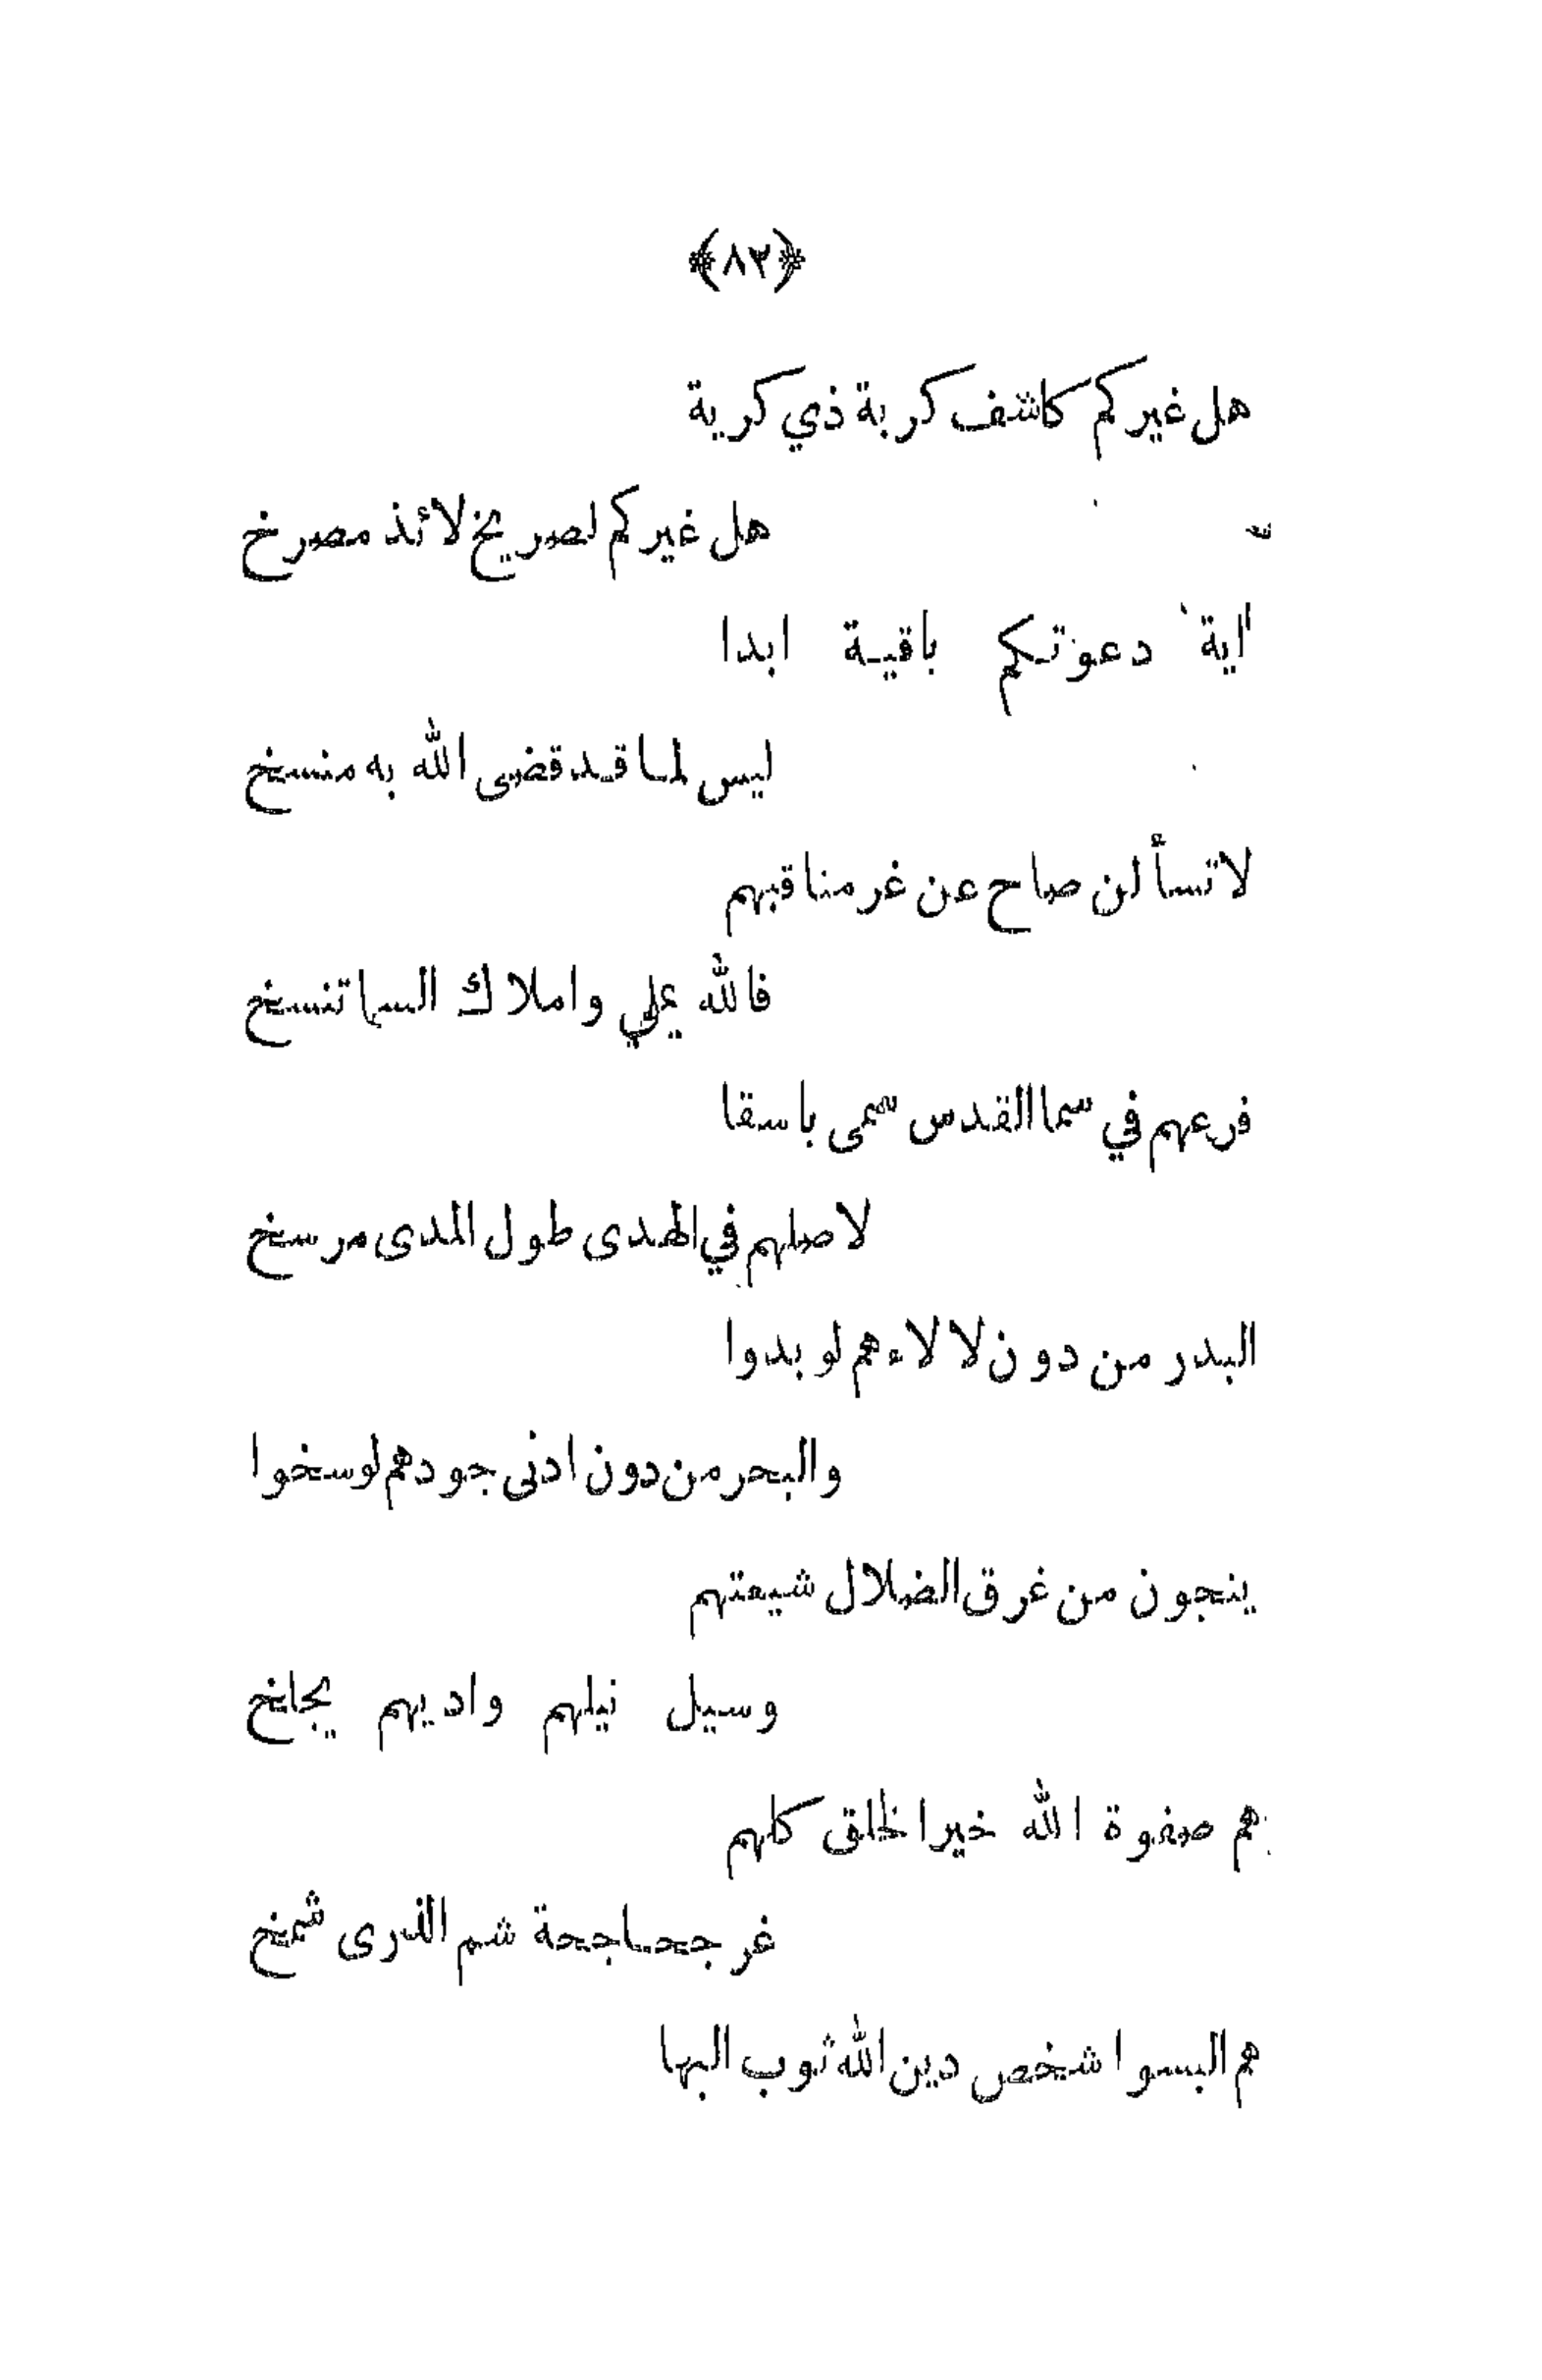 ﴿٨٣﴾
هل غيركم كاشف كربة ذي كربة
هل غيركم لصريخ لائذ مصرخ
اية دعوتكم باقية ابدا
ليس لما قد قضى الله به منسخ
لا تسألن صاح عن غر مناقبهم
فالله يملي واملاك السما تنسخ
فرعهم في سما القدس سمى باسقا
لاصلهم في الهدى طول المدى مرسخ
البدر من دون لالاءهم لو بدوا
والبحر من دون ادنى جودهم لو سخوا
ينجون من غرق الضلال شيعتهم
وسيل نيلهم واديهم يجلخ
هم صفوة الله خير الخلق كلهم
غر جحاجحة شم الذرى شمخ
هم البسوا شخص دين الله ثوب البها